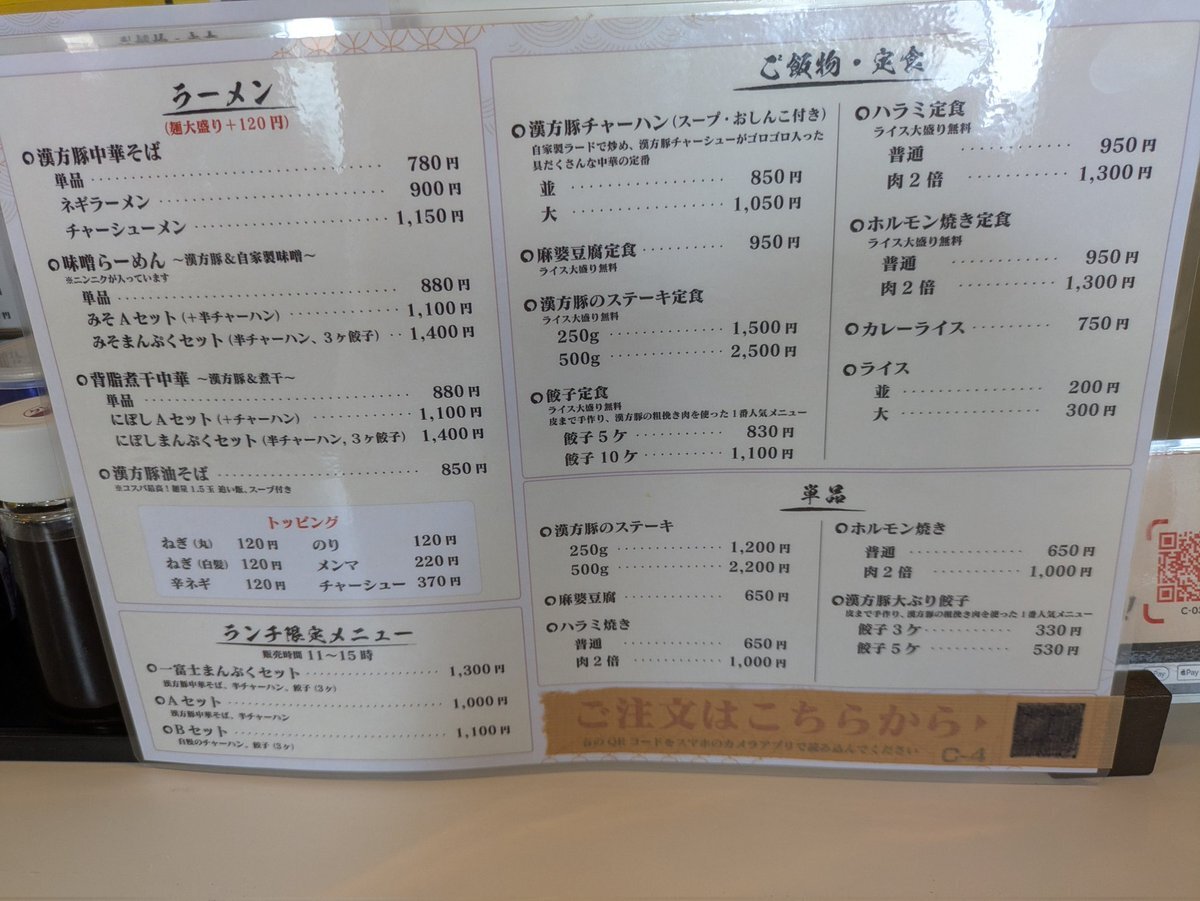 ラーメン
(麺大盛り+120円)
漢方豚中華そば
単品 780円
ネギラーメン 900円
チャーシューメン 1,150円
味噌らーめん ～漢方豚&自家製味噌～
※ニンニクが入っています
単品 880円
みそAセット(+半チャーハン) 1,100円
みそまんぷくセット(半チャーハン、3ヶ餃子) 1,400円
背脂煮干中華 ～漢方豚&煮干～
単品 880円
にぼしAセット(+チャーハン) 1,100円
にぼしまんぷくセット(半チャーハン、3ヶ餃子) 1,400円
漢方豚油そば 850円
※コスパ最高!麺量1.5玉 追い飯、スープ付き
トッピング
ねぎ(丸) 120円 のり 120円
ねぎ(白髪) 120円 メンマ 220円
辛ネギ 120円 チャーシュー 370円
ランチ限定メニュー
販売時間 11～15時
一富士まんぷくセット 1,300円
漢方豚中華そば、半チャーハン、餃子(3ヶ)
Aセット 1,000円
漢方豚中華そば、半チャーハン
Bセット 1,100円
自慢のチャーハン、餃子(3ヶ)
ご飯物・定食
漢方豚チャーハン(スープ・おしんこ付き)
自家製ラードで炒め、漢方豚チャーシューがゴロゴロ入った
具だくさんな中華の定番
並 850円
大 1,050円
麻婆豆腐定食 950円
ライス大盛り無料
漢方豚のステーキ定食
ライス大盛り無料
250g 1,500円
500g 2,500円
餃子定食
ライス大盛り無料
皮まで手作り、漢方豚の粗挽き肉を使った1番人気メニュー
餃子5ケ 830円
餃子10ケ 1,100円
ハラミ定食
ライス大盛り無料
普通 950円
肉2倍 1,300円
ホルモン焼き定食
ライス大盛り無料
普通 950円
肉2倍 1,300円
カレーライス 750円
ライス
並 200円
大 300円
単品
漢方豚のステーキ
250g 1,200円
500g 2,200円
麻婆豆腐 650円
ハラミ焼き
普通 650円
肉2倍 1,000円
ホルモン焼き
普通 650円
肉2倍 1,000円
漢方豚大ぶり餃子
皮まで手作り、漢方豚の粗挽き肉を使った1番人気メニュー
餃子3ケ 330円
餃子5ケ 530円
ご注文はこちらから
右のQRコードをスマホのカメラアプリで読み込んでください
C-4
Pay